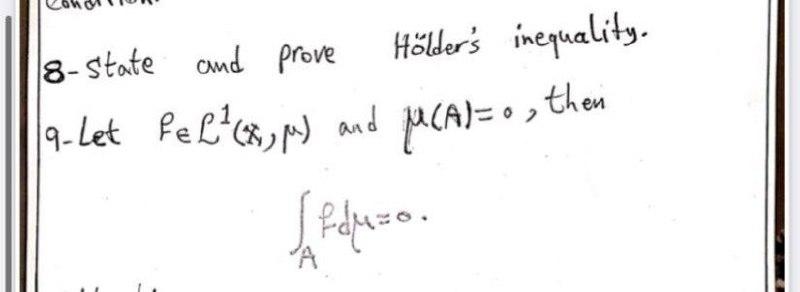 Condition.
8- State and prove Hölder's inequality.
9- Let f∈L¹(X,μ) and μ(A)=0, then
∫_A f dμ=0.